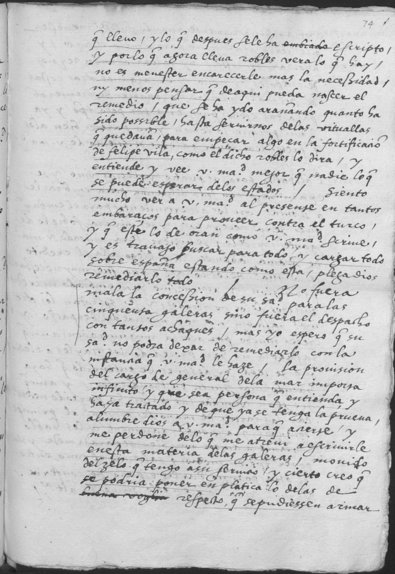 74
q̃ llevo, y lo q̃ despues se le ha embiado escripto,
y por lo q̃ agora lleva robles vera lo q̃ hay,
no es menester encarecerle mas la necessidad,
ny menos pensar q̃ de aqui pueda nascer el
remedio, que se ha ydo arañando quanto ha
sido possible, hasta servirnos delas vituallas
q̃ quedavã, para empeçar algo en la fortificaciõ
de felipe vila, como el dicho robles lo dira, y
entiende y vee v. mad mejor q̃ nadie lo q̃
se puede esperar delos estados, siento
mucho ver a v. mad al presente en tantos
embaraços para proveer contra el turco,
y q̃ esto lo de oran como v. mad scrive,
y es trabajo buscar para todo, y cargar todo
sobre españa estando como esta, plega a dios
remediarlo todo
no fuera
mala la concession de su sad para las
cinquenta galeras sino fuera el despacho
con tantos achaques, mas yo espero q̃ su
sad no podra dexar de remediarlo con la
instancia q̃ v. mad le haze la provision
del cargo de general dela mar importa
infinito, y que sea persona q̃ entienda y
haya tratado y de que ya se tenga la prueva,
alumbre dios a v. mad para q̃ acierte, y
me perdone delo q̃ me atrevi a escrivirle
en esta materia delas galeras, movido
del zelo q̃ tengo a su servicio, y cierto creo q̃
se podria poner en platica lo delas de
buena voglia respecto, q̃ se pudiessen armar